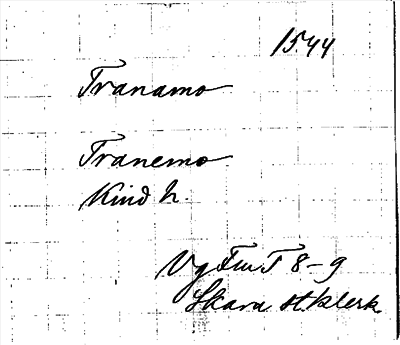 1544
Tranamo
Tranemo
Kind h.
Vg Fm T 8-9
Skara st. klerk.